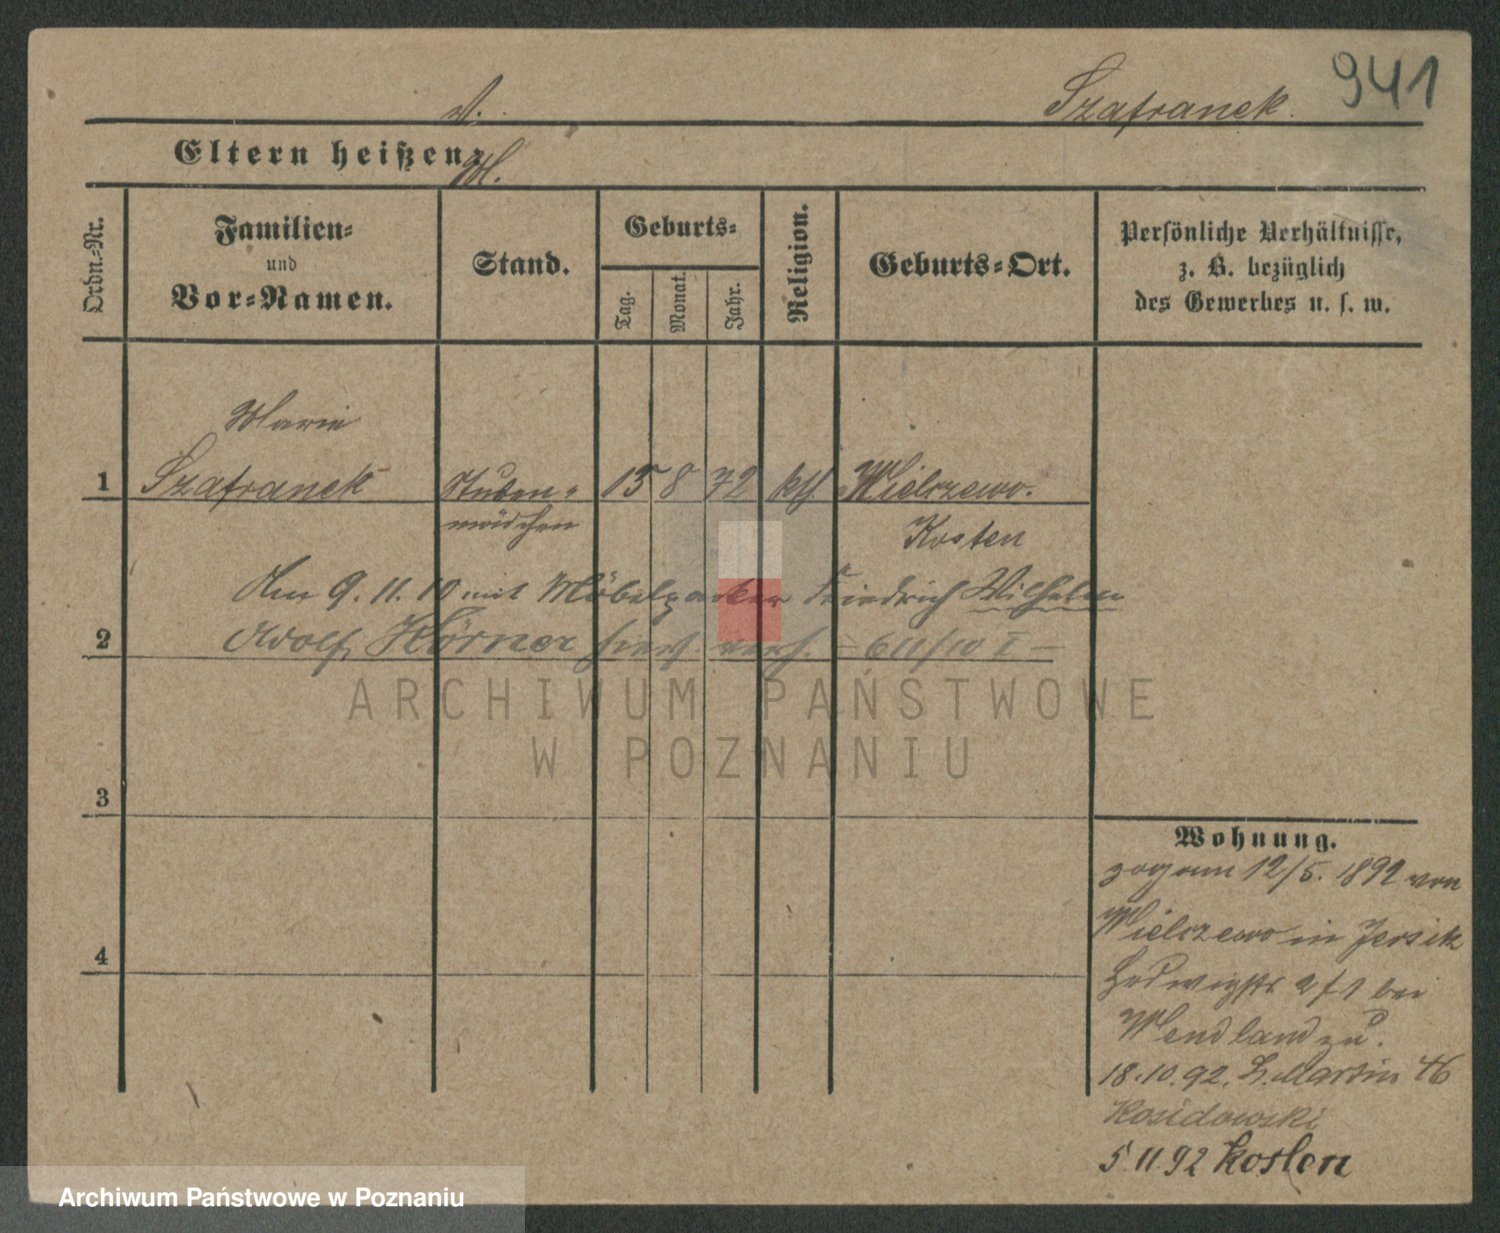 941
V.
Szafranek.
Eltern heißen:
M.
Ordn.-Nr.
Familien-
und
Vor-Namen.
Stand.
Geburts-
Tag.
Monat.
Jahr.
Religion.
Geburts-Ort.
Persönliche Verhältnisse,
z. B. bezüglich
des Gewerbes u. s. w.
Marie
1 Szafranek Stuben- 15 8 72 kth. Wielczewo.
mädchen Kosten
Am 9. 11. 10 mit Möbelpacker Friedrich Wilhelm
2 Adolf Hörner hier verh. - 611/10 I -
ARCHIWUM PAŃSTWOWE
W POZNANIU
3
4
Wohnung.
zog am 12/5. 1892 von
Wielczewo in Jersitz
Hedwigstr. bei
Wendland zu.
18.10.92. St. Martin 46
Kosidowski
5 11 92 Kosten
Archiwum Państwowe w Poznaniu